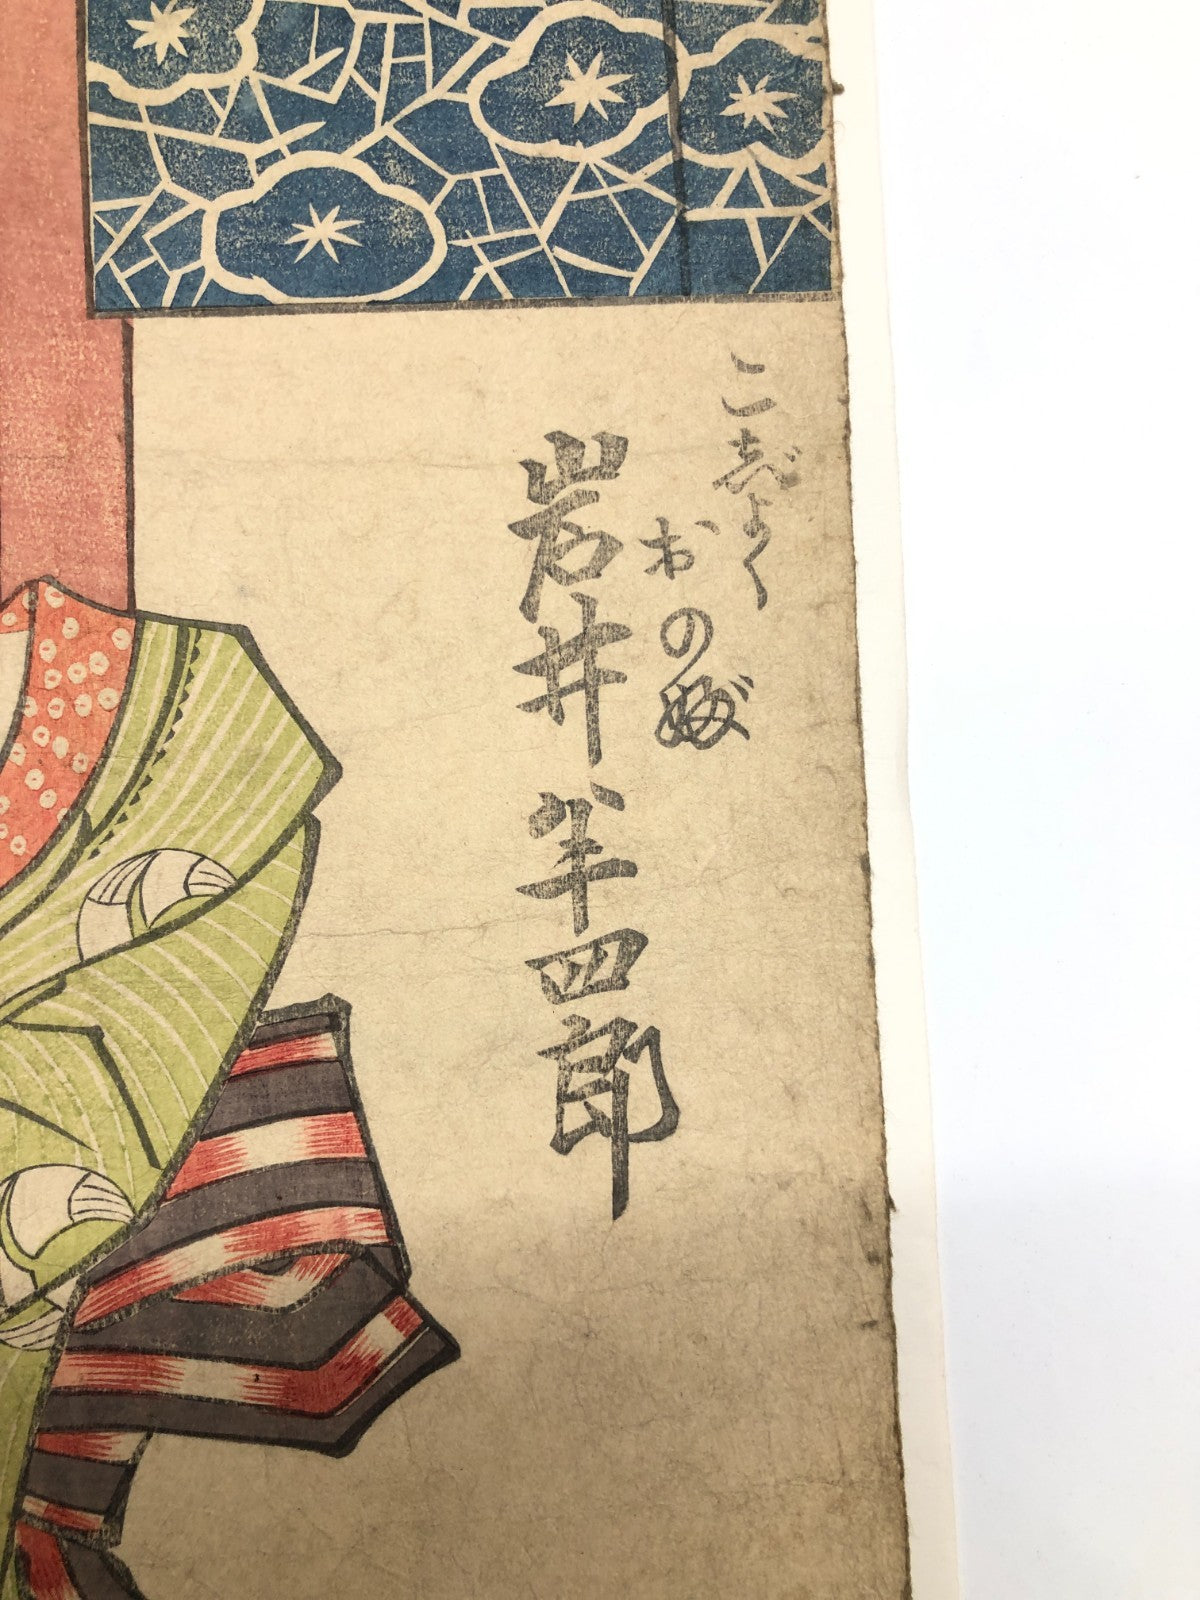 こゞよく
おのぶ
岩井半四郎